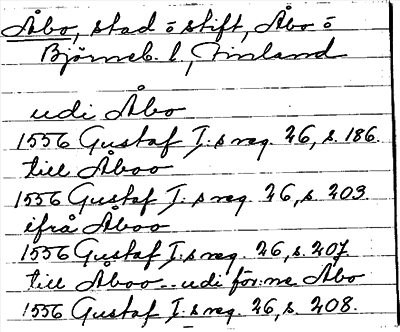 Åbo, stad o stift, Åbo o
Björneb. l., Finland
udi Åbo
1556 Gustaf I:s reg. 26, s. 186.
till Åboo
1556 Gustaf I:s reg. 26, s. 203.
ifrå Åboo
1556 Gustaf I:s reg. 26, s. 207.
till Åboo - - udi för:ne Åbo
1556 Gustaf I:s reg. 26, s. 208.